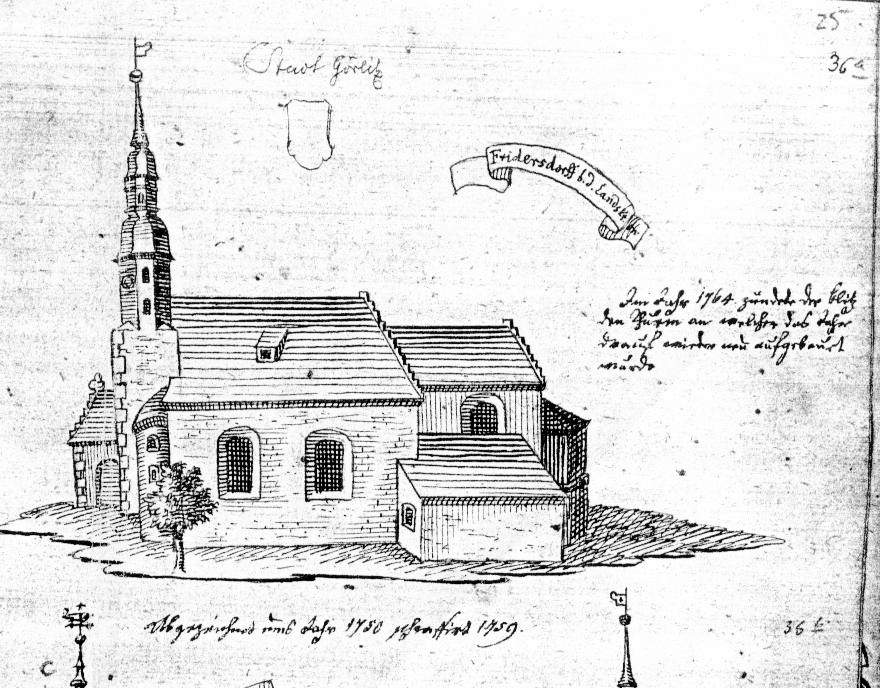 25
36a
Stadt Görlitz
Fridersdorff b. d. Landsk
Im Jahr 1764 zündete der blitz
den Thurm an welcher das Jahr
drauf wieder neu aufgebaut
wurde
Abgezeichnet ums Jahr 1750 schraffirt 1759.
36b
C